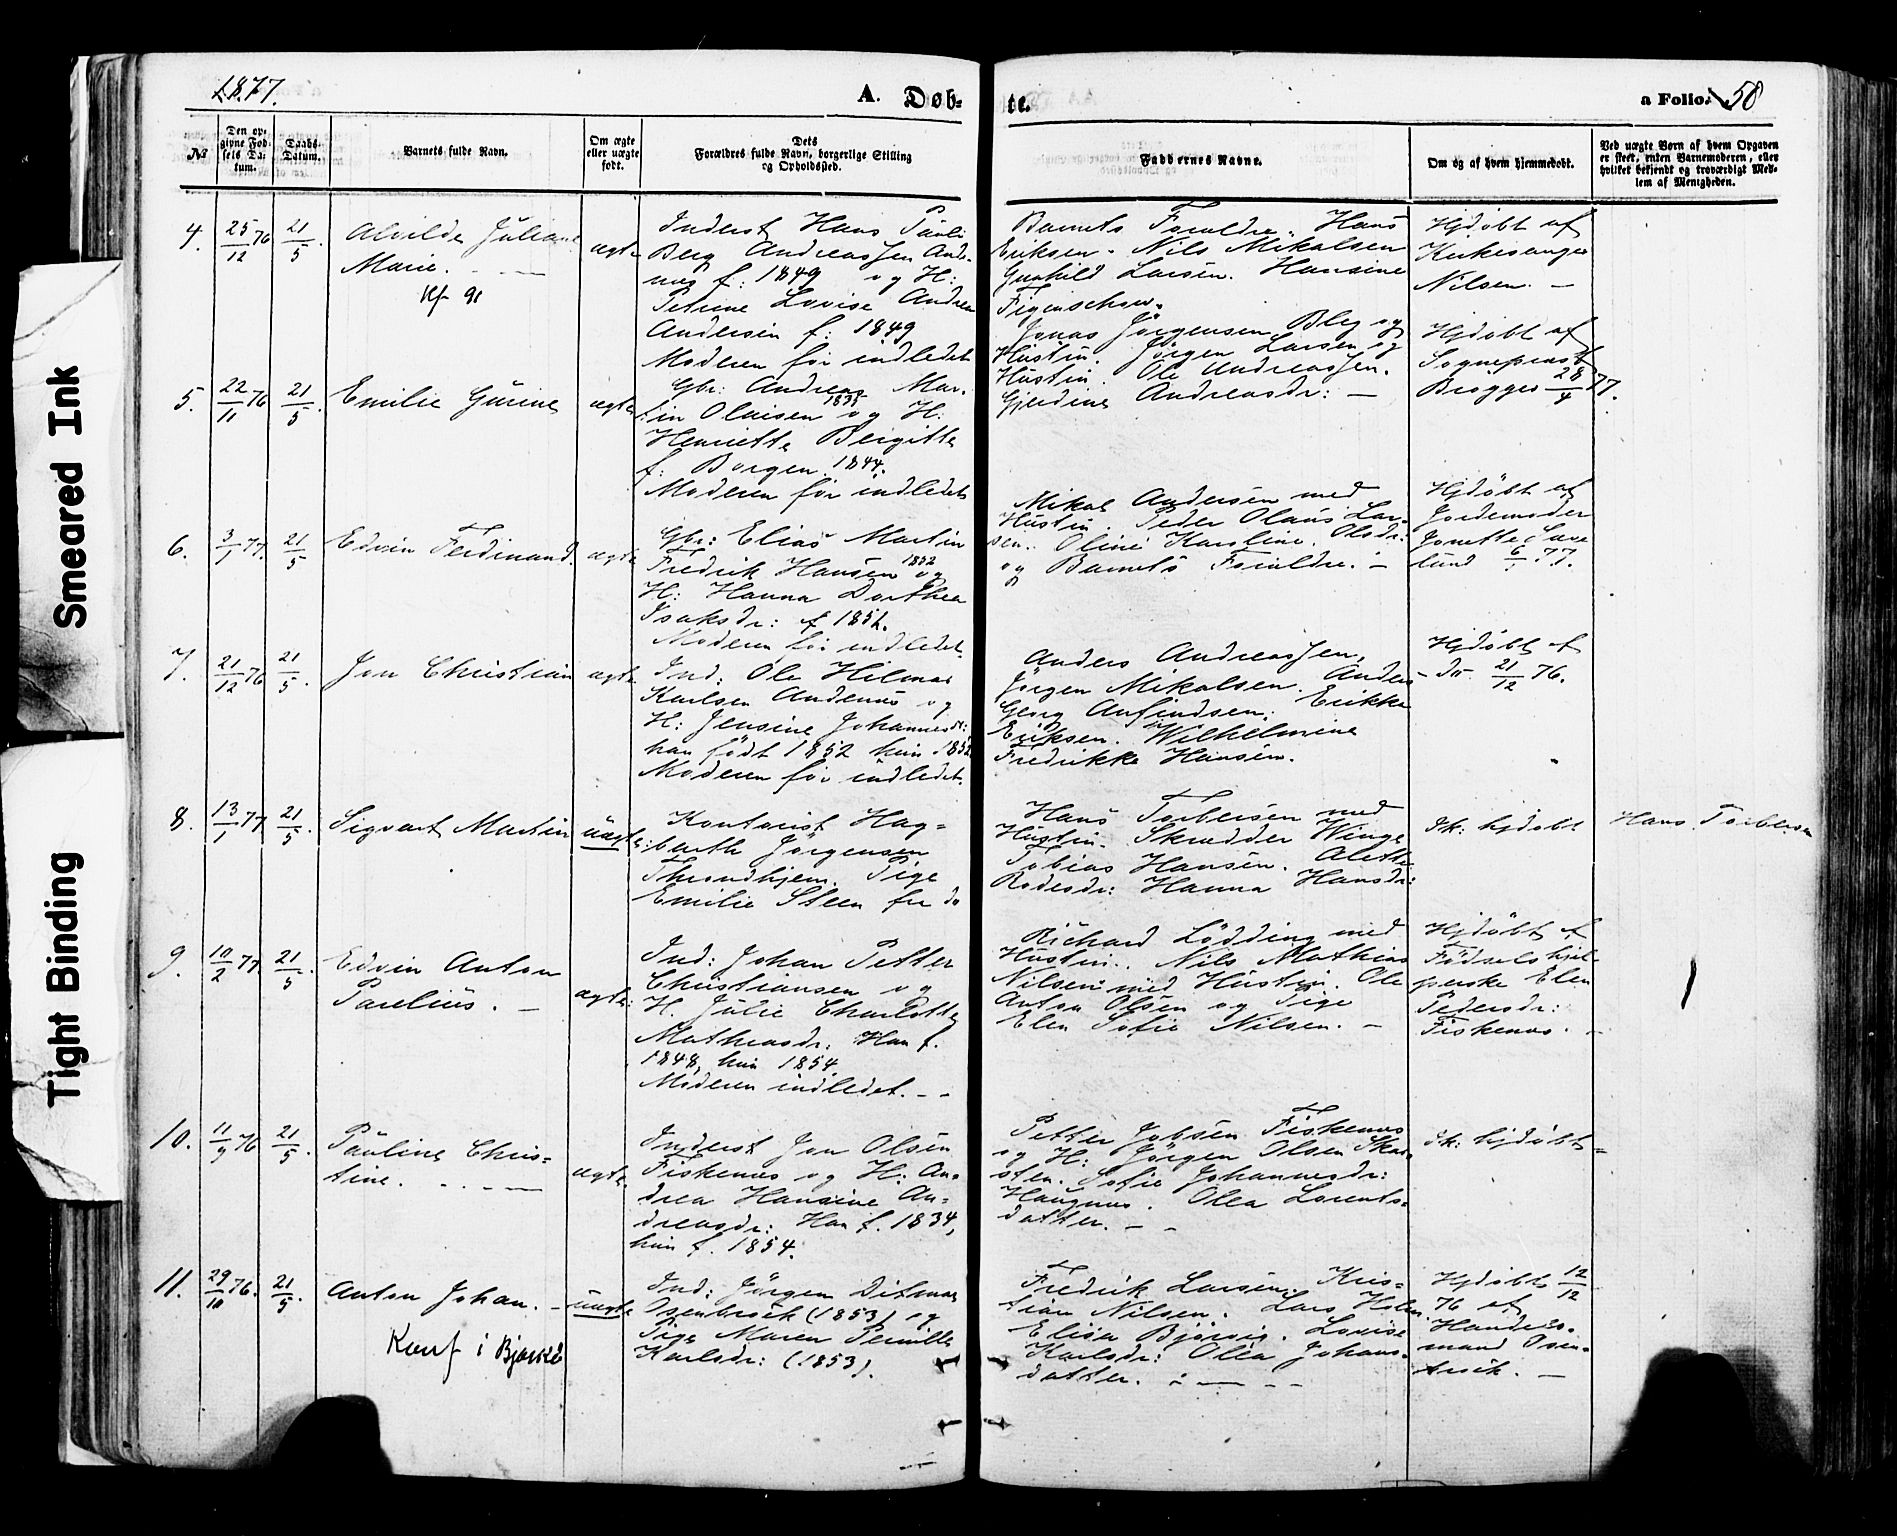 1877.
A. Døb-
te.
a Folio. 58
№
Den op-
givne Fød-
sels Da-
tum.
Daabs-
Datum.
Barnets fulde Navn.
Om ægte
eller uægte
født.
Dets
Forældres fulde Navn, borgerlige Stilling
og Opholdssted.
Faddernes Navne.
Om og af hvem hjemmedøbt.
Ved uægte Børn af hvem Opgaven
er skeet, enten Barnemoderen, eller
hvilket bekjendt og troværdigt Med-
lem af Menigheden.
4. 25/12 76 21/5.
Alvilda Juliane
Marie. - —
Kf 91
ægte
Inderst Hans Pauli
Berg Andreassen Ande-
næs f. 1849 og H:
Petrine Lovise Andrea
Andersen f: 1849
Moderen før indledet
Barnets Forældre. Hans
Eriksen. Nils Mikalsen
Gunhild Larsen. Hansine
Figenschou.
Hjdøbt af
Kirkesanger
Nilsen. —
5. 22/11 76 21/5.
Emilie Gurine
ægte
Gbr: Andreas Mar-
tin Olaisen 1835 og H:
Henriette Birgitte
f: Borgen 1844.
Moderen før indledet
Jonas Jörgensen Bleg og
Hustru. Jörgen Larsen og
Hustru. Ole Andreassen.
Gjerdine Andreasdr: —
Hjdøbt af
Sogneprest
Brøgger 28/4 77.
6. 3/1 77. 21/5
Edvin Ferdinand.
ægte
Gbr: Elias Martin
Fredrik Hansen 1832 og
H: Hanna Dorthea
Isaksdr: f 1852.
Moderen før indledet.
Mikal Andersen med
Hustru. Peder Olaus Lar-
sen. Oline Karoline Olsdr:
og Barnets Forældre. —
Hjdøbt af
Jordemoder
Jonette
lund 6/1 77.
7. 21/12 76 21/5.
Jon Christian
ægte
Ind: Ole Hilmar
Karlsen Andenæs og
H: Jensine Johannesdr:
han født 1852 hun 1852
Moderen før indledet.
Anders Andreassen,
Jörgen Mikalsen. Anders
Georg Anfindsen. Erikka
Eriksen. Wilhelmine
Fredrikke Hansen.
Hjdøbt af
- do. 21/12 76.
8. 13/1 77 21/5.
Sigvart Martin
uægte:
Kontorist Hag-
barth Jörgensen
Throndhjem. Pige
Emilie Steen fra do
Hans Torbersen med
Hustru. Skrædder Winge
Tobias Hansen. Alette
Rodesdr: Hanna Hansdr:
Ik: hjdøbt
Hans Torbersen
9. 10/2 77 21/5.
Edvin Anton
Parelius. —
ægte:
Ind: Johan Petter
Christiansen og
H. Julie Charlotte
Mathiasdr: Han f.
1848, hun 1854.
Moderen indledet. - -
Richard Lödding med
Hustru. Nils Mathias
Nilsen med Hustru. Ole
Anton Olsen og Pige
Elen Sofie Nilsen. —
Hjdøbt af
Födselshjel-
perske Elen
Pedersdr:
Fiskenæs. -
10. 11/9 76 21/5.
Pauline Chris-
tine. - - - —
ægte.
Inderst Jon Olsen
Fiskenæs og H: An-
drea Hansine An-
dreasdr: Han f. 1834,
hun f. 1854.
Petter Jobsen Fiskenæs
og H: Jörgen Olsen Skar-
sten. Sofie Johannesdr:
Haugnæs. Olea Lorents-
datter. - -
Ik: hjdøbt -
11. 29/10 76. 21/5.
Anton Johan. -
Konf i Bjarkö
uægte
Ind: Jörgen Ditmar
Osenbrock (1853) og
Pige Maren Pernille
Karlsdr: (1853).
Fredrik Larsen. Kris-
tian Nilsen. Lars Holm
Elisa Björvig. Lovise
Karlsdr: Olea Johans-
datter. - — - -
Hjdøbt 12/12
76 af
Handels-
mand Osen-
brock. —
Smeared Ink
Tight Binding